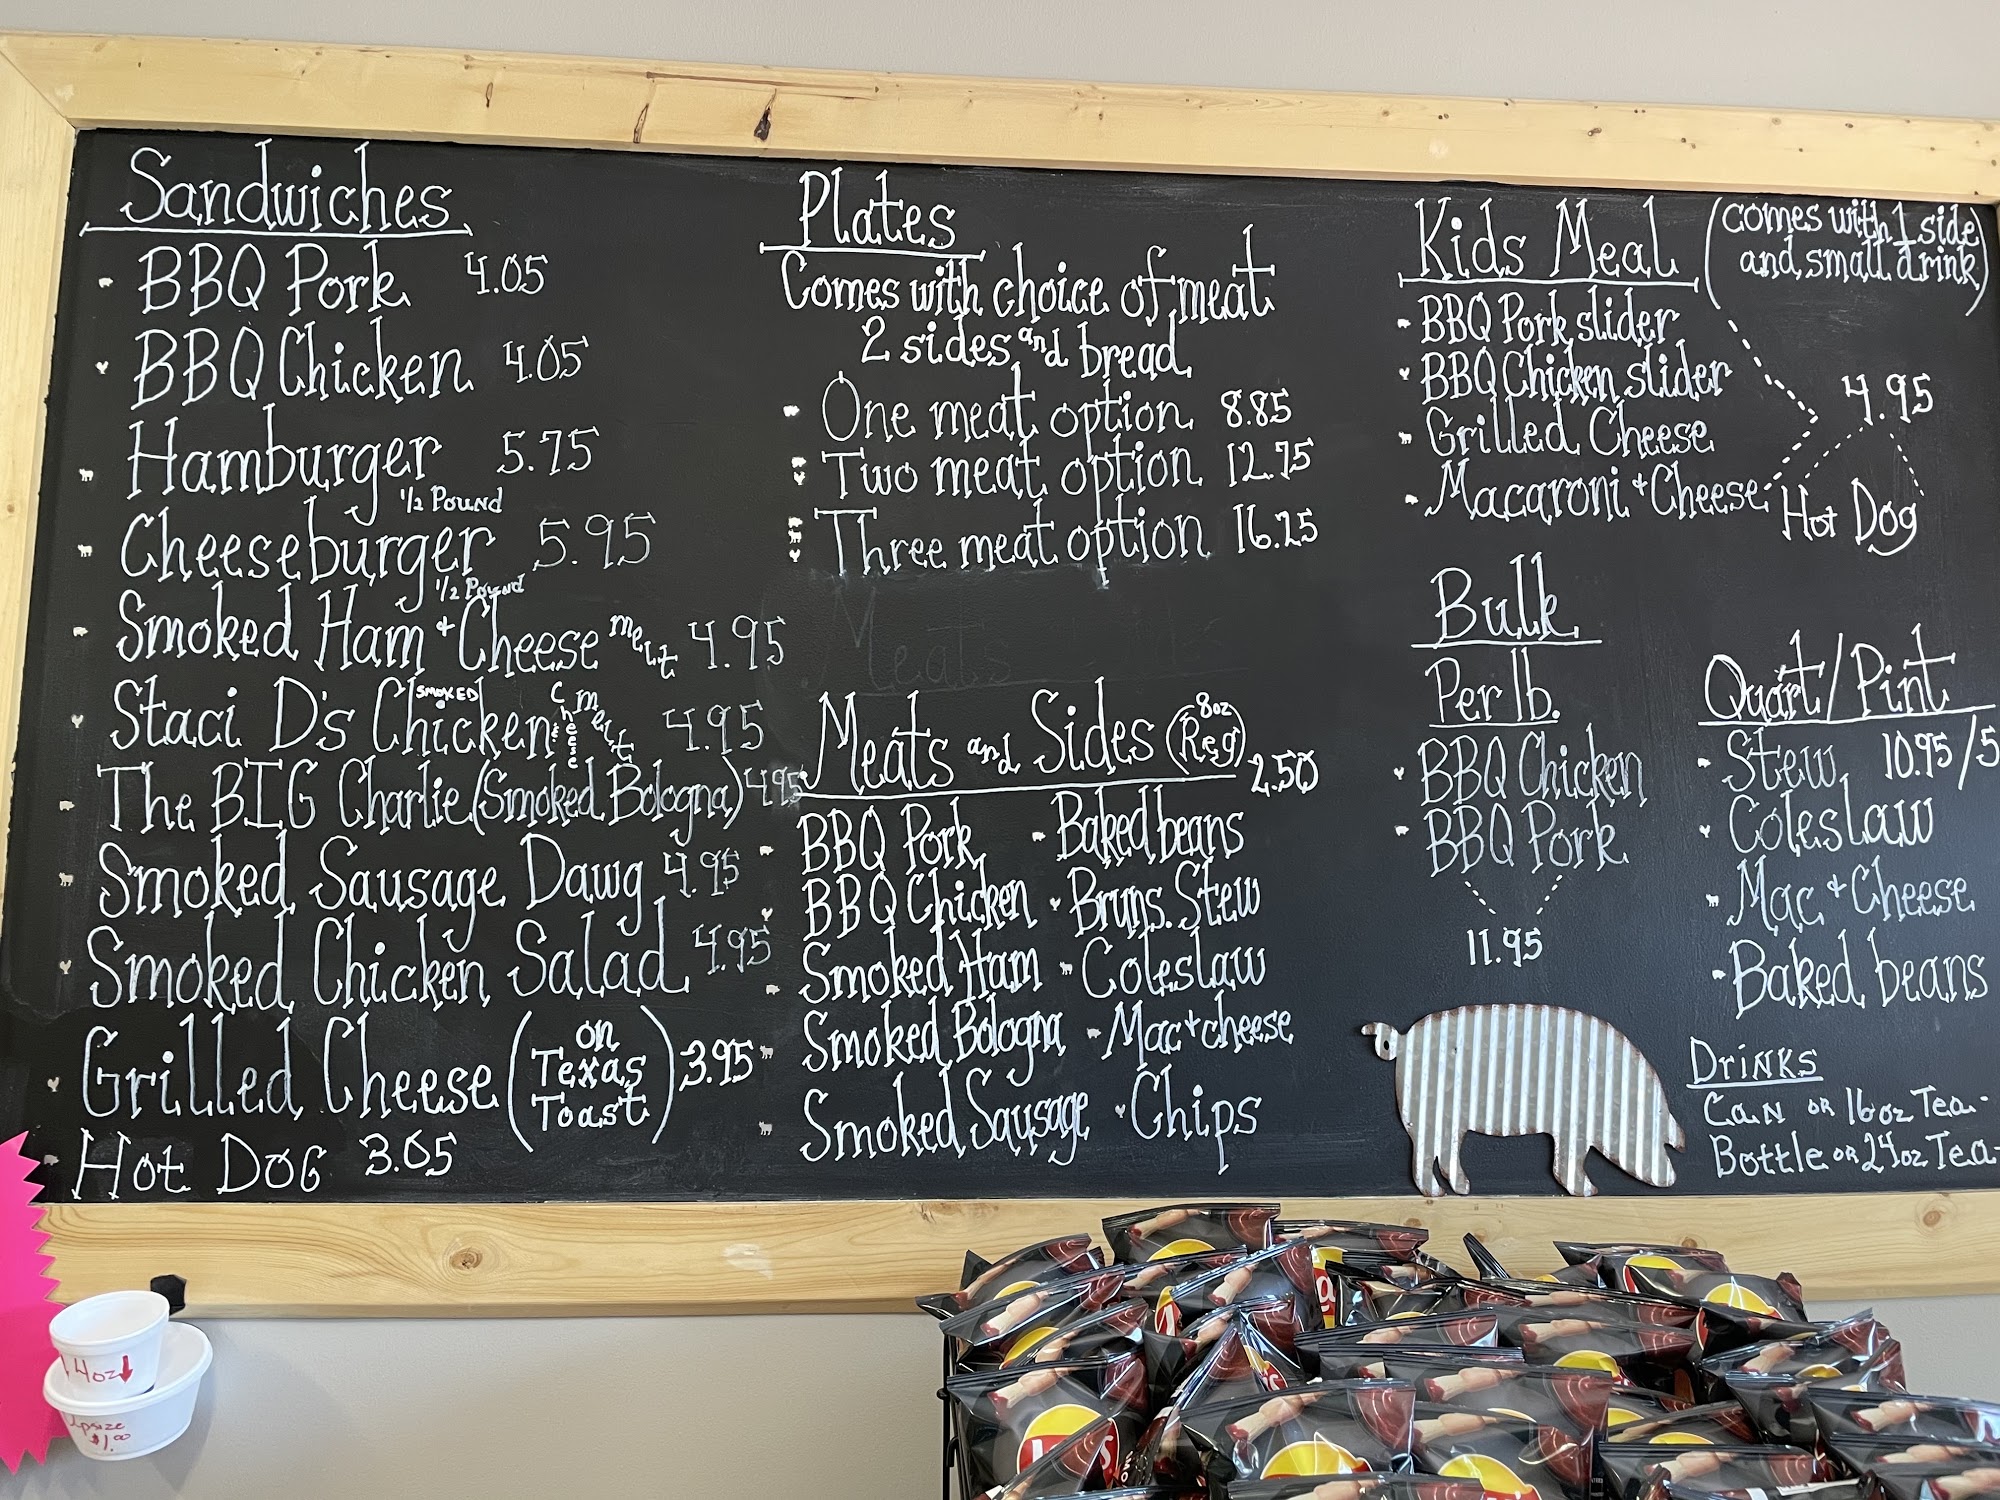 Sandwiches
BBQ Pork 4.05
BBQ Chicken 4.05
Hamburger 5.75
1/2 Pound
Cheeseburger 5.95
1/2 Pound
Smoked Ham + Cheese melt 4.95
Staci D's Smoked Chicken & cheese melt 4.95
The BIG Charlie (Smoked Bologna) 4.95
Smoked Sausage Dawg 4.95
Smoked Chicken Salad 4.95
Grilled Cheese (on Texas Toast) 3.95
Hot DOG 3.05
Plates
Comes with choice of meat
2 sides and bread
One meat option 8.85
Two meat option 12.75
Three meat option 16.25
Meats
Meats and Sides (8oz Reg) 2.50
BBQ Pork
BBQ Chicken
Smoked Ham
Smoked Bologna
Smoked Sausage
Baked beans
Bruns. Stew
Coleslaw
Mac + cheese
Chips
Kids Meal (comes with 1 side
and small drink)
BBQ Pork slider
BBQ Chicken slider
Grilled Cheese
Macaroni + Cheese
4.95
Hot Dog
Bulk
Per lb.
BBQ Chicken
BBQ Pork
11.95
Quart/Pint
Stew 10.95/5
Coleslaw
Mac + Cheese
Baked beans
Drinks
Can or 16oz Tea-
Bottle or 24oz Tea-
4oz
upsize
$1.00
Lay's